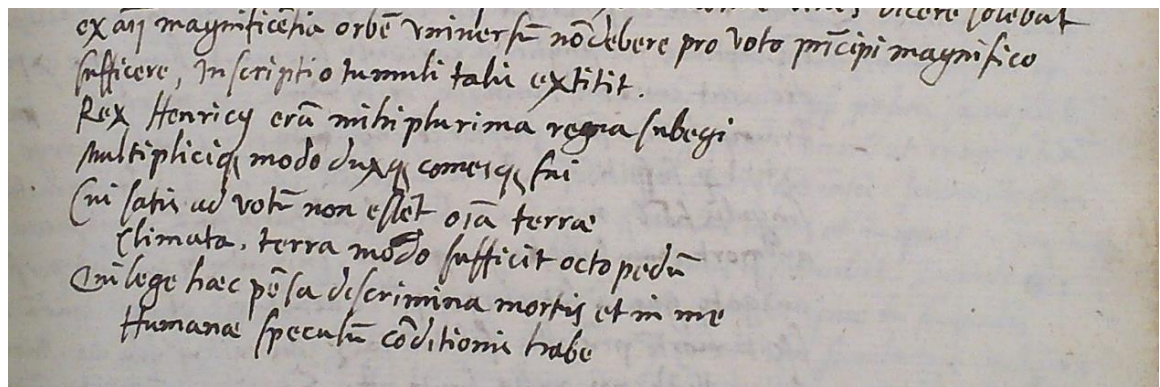 dicere solebat
ex aīj magnificētia orbē vniuersū nō debere pro voto prīcipi magnifico
sufficere, Inscriptio tumuli talis extitit.
Rex Henricꝰ erā mihi plurima regna subegi
Multipliciqꝫ modo duxqꝫ comesqꝫ fui
Cui satis ad votū non essēt oīa terræ
Climata, terra modo sufficit octo pedū
Qui legis hæc pēsa discrimina mortis et in me
Humanæ speculū cōditionis habe